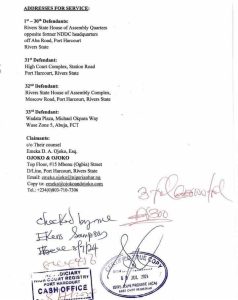 ADDRESSES FOR SERVICE:
1st – 30th Defendants:
Rivers State House of Assembly Quarters
opposite former NDDC headquarters
off Aba Road, Port Harcourt
Rivers State
31st Defendant:
High Court Complex, Station Road
Port Harcourt, Rivers State
32nd Defendant:
Rivers State House of Assembly Complex,
Moscow Road, Port Harcourt, Rivers State
33rd Defendant:
Wadata Plaza, Michael Okpara Way
Wuse Zone 5, Abuja, FCT
Claimants:
c/o Their counsel
Emeka D. A. Ojoko, Esq.
OJOKO & OJOKO
Top Floor, #15 Mbonu (Ogbia) Street
D/Line, Port Harcourt, Rivers State
Email:
Copy to:
Tel: +234(0)803-710-7306
checked by me
JUDICIARY
HIGH COURT REGISTRY
PORT HARCOURT
CASH OFFICE
TRUE COPY